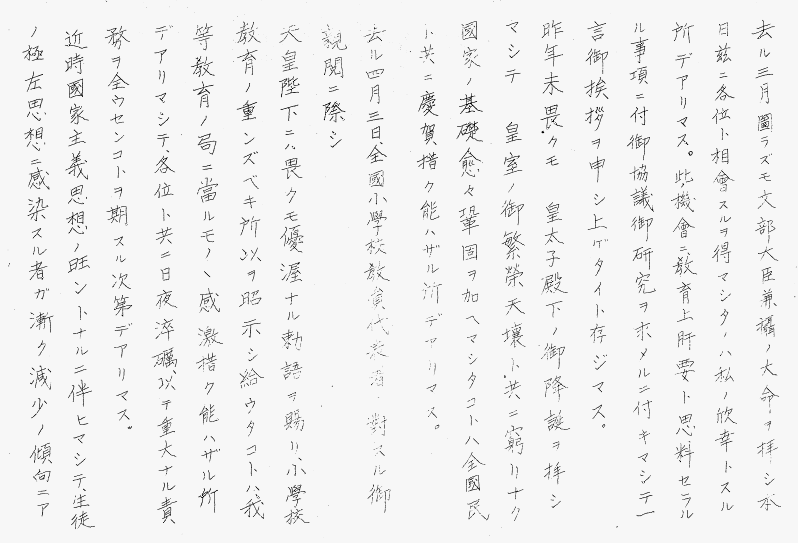 去ル三月圖ラズモ文部大臣兼攝ノ大命ヲ拝シ本
日玆ニ各位ト相會スルヲ得マシタノハ私ノ欣幸トスル
所デアリマス。此機會ニ教育上肝要ト思料セラル
ル事項ニ付御協議御研究ヲ求メルニ付キマシテ一
言御挨拶ヲ申シ上ゲタイト存ジマス。
昨年末畏クモ 皇太子殿下ノ御降誕ヲ拝シ
マシテ 皇室ノ御繁榮天壤ト共ニ窮リナク
國家ノ基礎愈々鞏固ヲ加ヘマシタコトハ全國民
ト共ニ慶賀措ク能ハザル所デアリマス。
去ル四月三日、全國小學校教員代表者ニ對スル御
親閲ニ際シ
天皇陛下ニハ畏クモ優渥ナル勅語ヲ賜リ、小學校
教育ノ重ンズベキ所以ヲ昭示シ給ウタコトハ、我
等教育ノ局ニ當ルモノヽ感激措ク能ハザル所
デアリマシテ、各位ト共ニ日夜淬礪、以テ重大ナル責
務ヲ全ウセンコトヲ期スル次第デアリマス。
近時國家主義思想ノ旺ントナルニ伴ヒマシテ、生徒
ノ極左思想ニ感染スル者ガ漸ク減少ノ傾向ニア